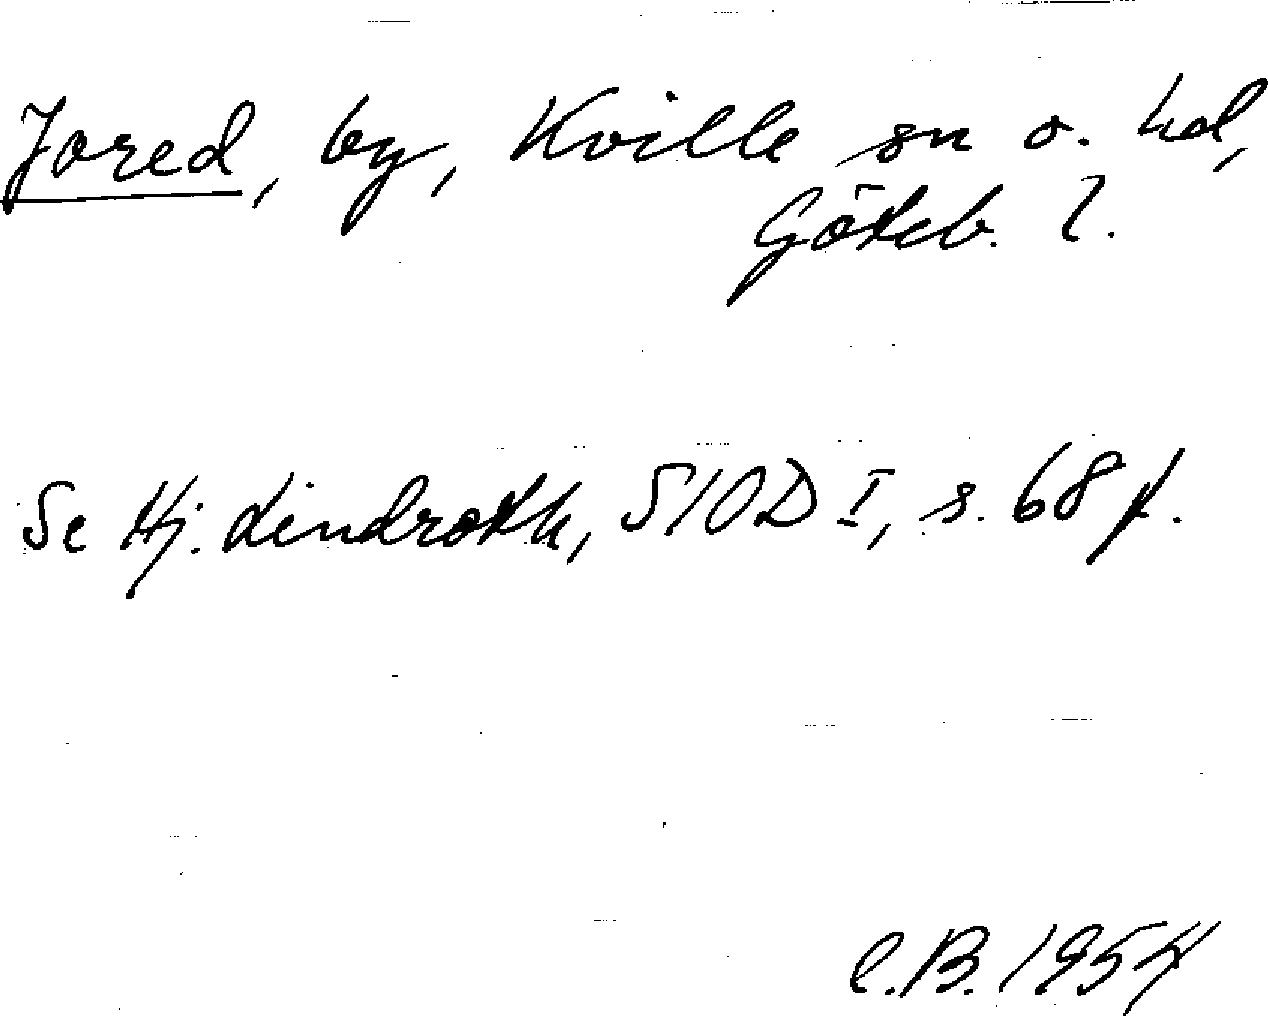 Jored, by, Kville sn o. hd,
Göteb. l.
Se Hj. Lindroth, SIOD I, s. 68 f.
C.B. 1954